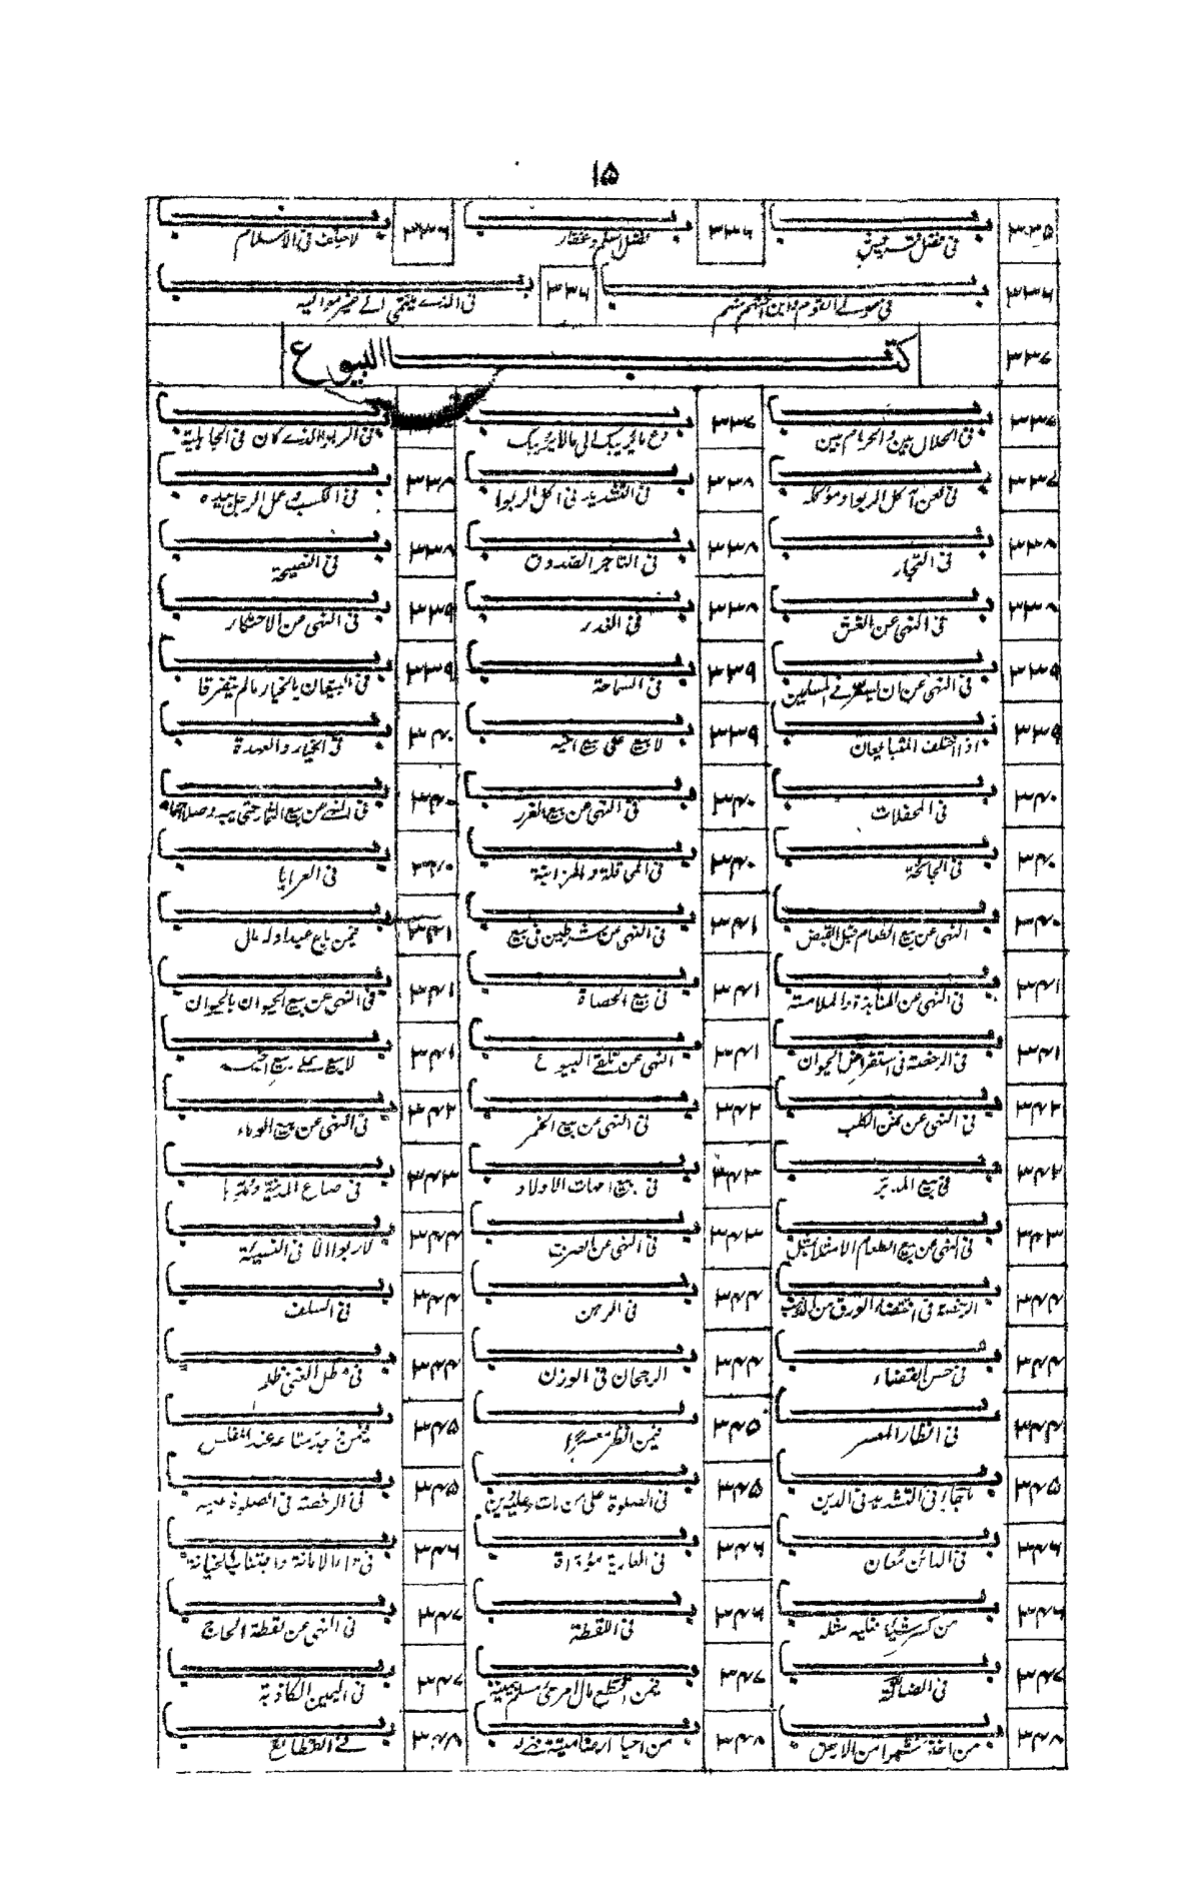 ۱۵
۳۳۵ باب فی فضل قریش ۳۳۶ باب فضل اسلم وغفار ۳۳۶ باب لا حلف فی الاسلام
۳۳۶ باب فی مولی القوم وابن اختهم منهم ۳۳۶ باب فی الذے ینتمی الے غیر موالیه
۳۳۷ کتاب البیوع
۳۳۷ باب فی الحلال بین والحرام بین ۳۳۷ باب دع ما یریبک الی مالا یریبک باب فی الربوا الذے کان فی الجاهلیة
۳۳۷ باب فی لعن آکل الربوا وموکله ۳۳۸ باب فی التشدید فی اکل الربوا ۳۳۸ باب فی الکسب وعمل الرجل بیده
۳۳۸ باب فی التجار ۳۳۸ باب فی التاجر الصدوق ۳۳۸ باب فی النصیحة
۳۳۸ باب فی النهی عن الغش ۳۳۸ باب فی الغدر ۳۳۹ باب فی النهی عن الاحتکار
۳۳۹ باب فی النهی عن ان یسعر فے المسلمین ۳۳۹ باب فی السماحة ۳۳۹ باب فی البیعان بالخیار مالم یتفرقا
۳۳۹ باب اذا اختلف المتبایعان ۳۳۹ باب لا یبیع علی بیع اخیه ۳۴۰ باب فی الخیار والعهدة
۳۴۰ باب فی المحفلات ۳۴۰ باب فی النهی عن بیع الغرر ۳۴۰ باب فی النهے عن بیع الثمار حتی یبدو صلاحها
۳۴۰ باب فی الجائحة ۳۴۰ باب فی المحاقلة والمزابنة ۳۴۰ باب فی العرایا
۳۴۰ باب النهی عن بیع الطعام قبل القبض ۳۴۱ باب فی النهی عن شرطین فی بیع ۳۴۱ باب فیمن باع عبدا وله مال
۳۴۱ باب فی النهی عن المنابذة والملامسة ۳۴۱ باب فی بیع الحصاة ۳۴۱ باب فی النهی عن بیع الحیوان بالحیوان
۳۴۱ باب فی الرخصة فی استقراض الحیوان ۳۴۱ باب النهی عن تلقے البیوع باب لا یبیع علے بیع اخیه
۳۴۲ باب فی النهی عن ثمن الکلب ۳۴۲ باب فی النهی عن بیع الخمر ۳۴۲ باب فی النهی عن بیع الماء
باب فی بیع المدبر ۳۴۳ باب فی بیع امهات الاولاد ۳۴۳ باب فی صاع المدینة
۳۴۳ باب فی النهی عن بیع الطعام الا مثلا بمثل ۳۴۳ باب فی النهی عن الصرف ۳۴۴ باب لا ربوا الا فی النسیئة
۳۴۴ باب الرخصة فی اقتضاء الورق من الذهب ۳۴۴ باب فی الرهن ۳۴۴ باب فی السلف
۳۴۴ باب فی حسن القضاء ۳۴۴ باب الرجحان فی الوزن ۳۴۴ باب فی مطل الغنی ظلم
۳۴۴ باب فی انظار المعسر ۳۴۵ باب فیمن انظر معسرا ۳۴۵ باب فیمن وجد متاعه عند المفلس
۳۴۵ باب ما جاء فی التشدید فی الدین ۳۴۵ باب فی الصلوة علی من مات وعلیه دین ۳۴۵ باب فی الرخصة فی الصلوة علیه
۳۴۶ باب فی الدائن معان ۳۴۶ باب فی العاریة مؤداة ۳۴۶ باب فی اداء الامانة واجتناب الخیانة
۳۴۶ باب من کسر شیئا فعلیه مثله ۳۴۶ باب فی اللقطة ۳۴۷ باب فی النهی عن لقطة الحاج
۳۴۷ باب فی الضالة ۳۴۷ باب فیمن اقتطع مال امرئ مسلم بیمینه ۳۴۷ باب فی الیمین الکاذبة
۳۴۸ باب من اخذ شبرا من الارض ۳۴۸ باب من احیا ارضا میتة فهے له ۳۴۸ باب فے القطائع